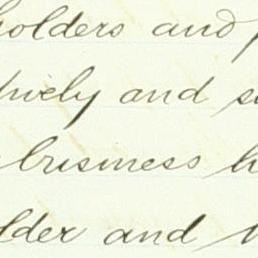 holders and
tively and
business
lder and